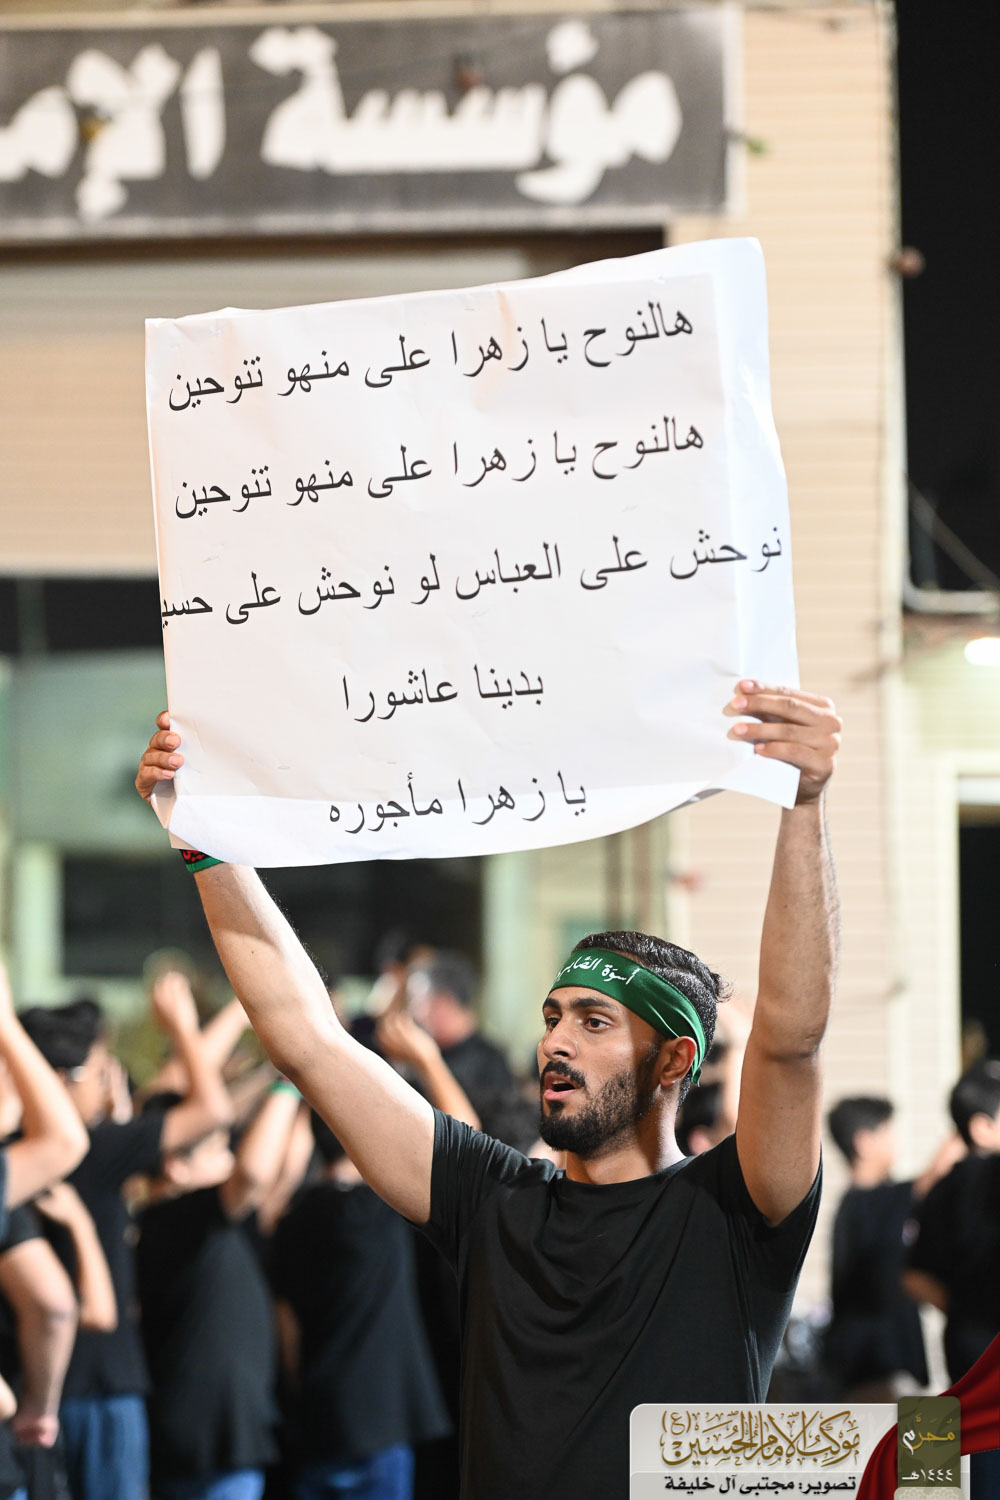 مؤسسة الإم
هالنوح يا زهرا على منهو تنوحين
هالنوح يا زهرا على منهو تنوحين
نوحش على العباس لو نوحش على حسي
بدينا عاشورا
يا زهرا مأجوره
أسوة الصابر
موكب الإمام الحسين (ع)
تصوير: مجتبى آل خليفة
مُحَرَّم
١٤٤٤هـ